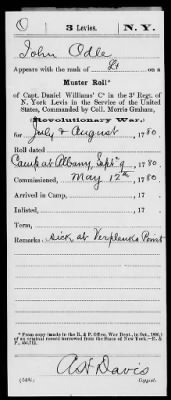 O | 3 Levies. | N. Y.
John Odle
Appears with the rank of Lt on a
Muster Roll*
of Capt. Daniel Williams' Co in the 3d Regt. of
N. York Levis in the Service of the United
States, Commanded by Coll. Morris Graham,
(Revolutionary War,)
for July & August, 1780.
Roll dated
Camp at Albany, Sept 9, 1780.
Commissioned, May 12th, 1780
Arrived in Camp, , 17
Enlisted, , 17
Term,
Remarks: sick at Verplanks Point
*From copy made in the R. & P. Office, War Dept., in Oct.,
of an original record borrowed from the State of New York.—R. &
P.
A H Davis
Copyist.